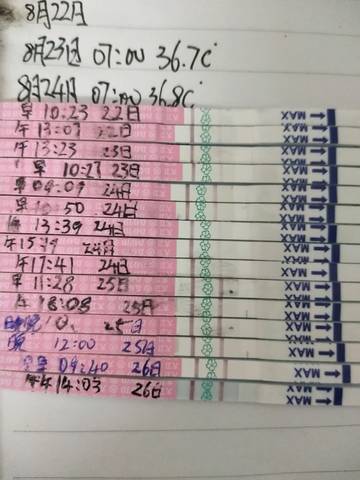 8月22日
8月23日 07:00 36.7℃
8月24日 07:00 36.8℃
早 10:23 22日 MAX
午 13:07 22日 MAX
午 13:23 23日 MAX
早 10:27 23日 MAX
早 09:09 24日 MAX
早 10:50 24日 MAX
午 13:39 24日 MAX
午 15:19 24日 MAX
午 17:41 24日 MAX
早 11:28 25日 MAX
午 18:08 25日 MAX
25日 MAX
晚 12:00 25日 MAX
早 09:40 26日 MAX
午 14:03 26日 MAX